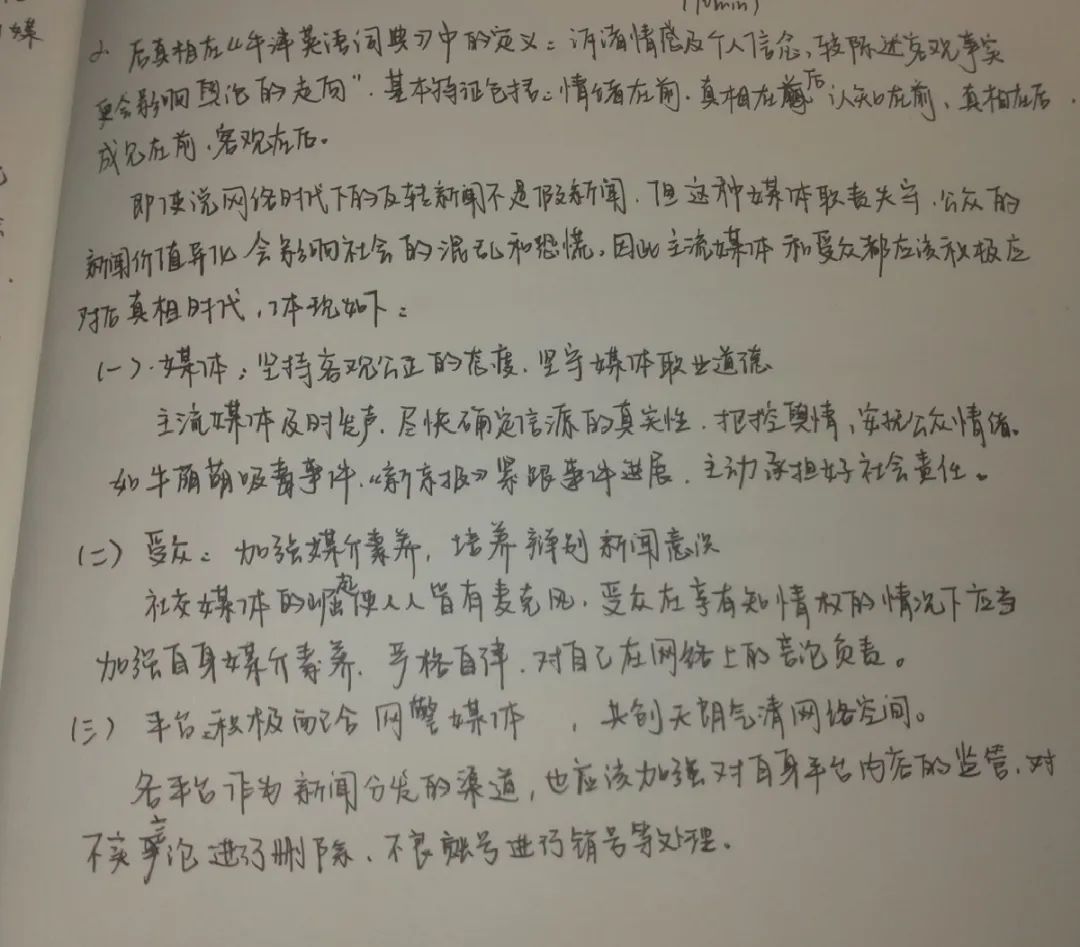 (10min)
媒
2. 后真相在《牛津英语词典》中的定义：诉诸情感及个人信念，较陈述客观事实
更会影响舆论的走向”. 基本特征包括：情绪在前、真相在后 认知在前、真相在后
成见在前、客观在后。
即使说网络时代下的反转新闻不是假新闻，但这种媒体职责失守、公众的
新闻价值异化会影响社会的混乱和恐慌，因此主流媒体和受众都应该积极应
对后真相时代，体现如下：
(一)、媒体：坚持客观公正的态度，坚守媒体职业道德
主流媒体及时发声，尽快确定信源的真实性，把控舆情，安抚公众情绪。
如牛萌萌吸毒事件，《新京报》紧跟事件进展，主动承担好社会责任。
(二) 受众：加强媒介素养，培养辨别新闻意识
社交媒体的崛起使人人皆有麦克风，受众在享有知情权的情况下应当
加强自身媒介素养，严格自律，对自己在网络上的言论负责。
(三) 平台：积极配合网警媒体 ，共创天朗气清网络空间。
各平台作为新闻分发的渠道，也应该加强对自身平台内容的监管，对
不实言论进行删除、不良账号进行销号等处理。